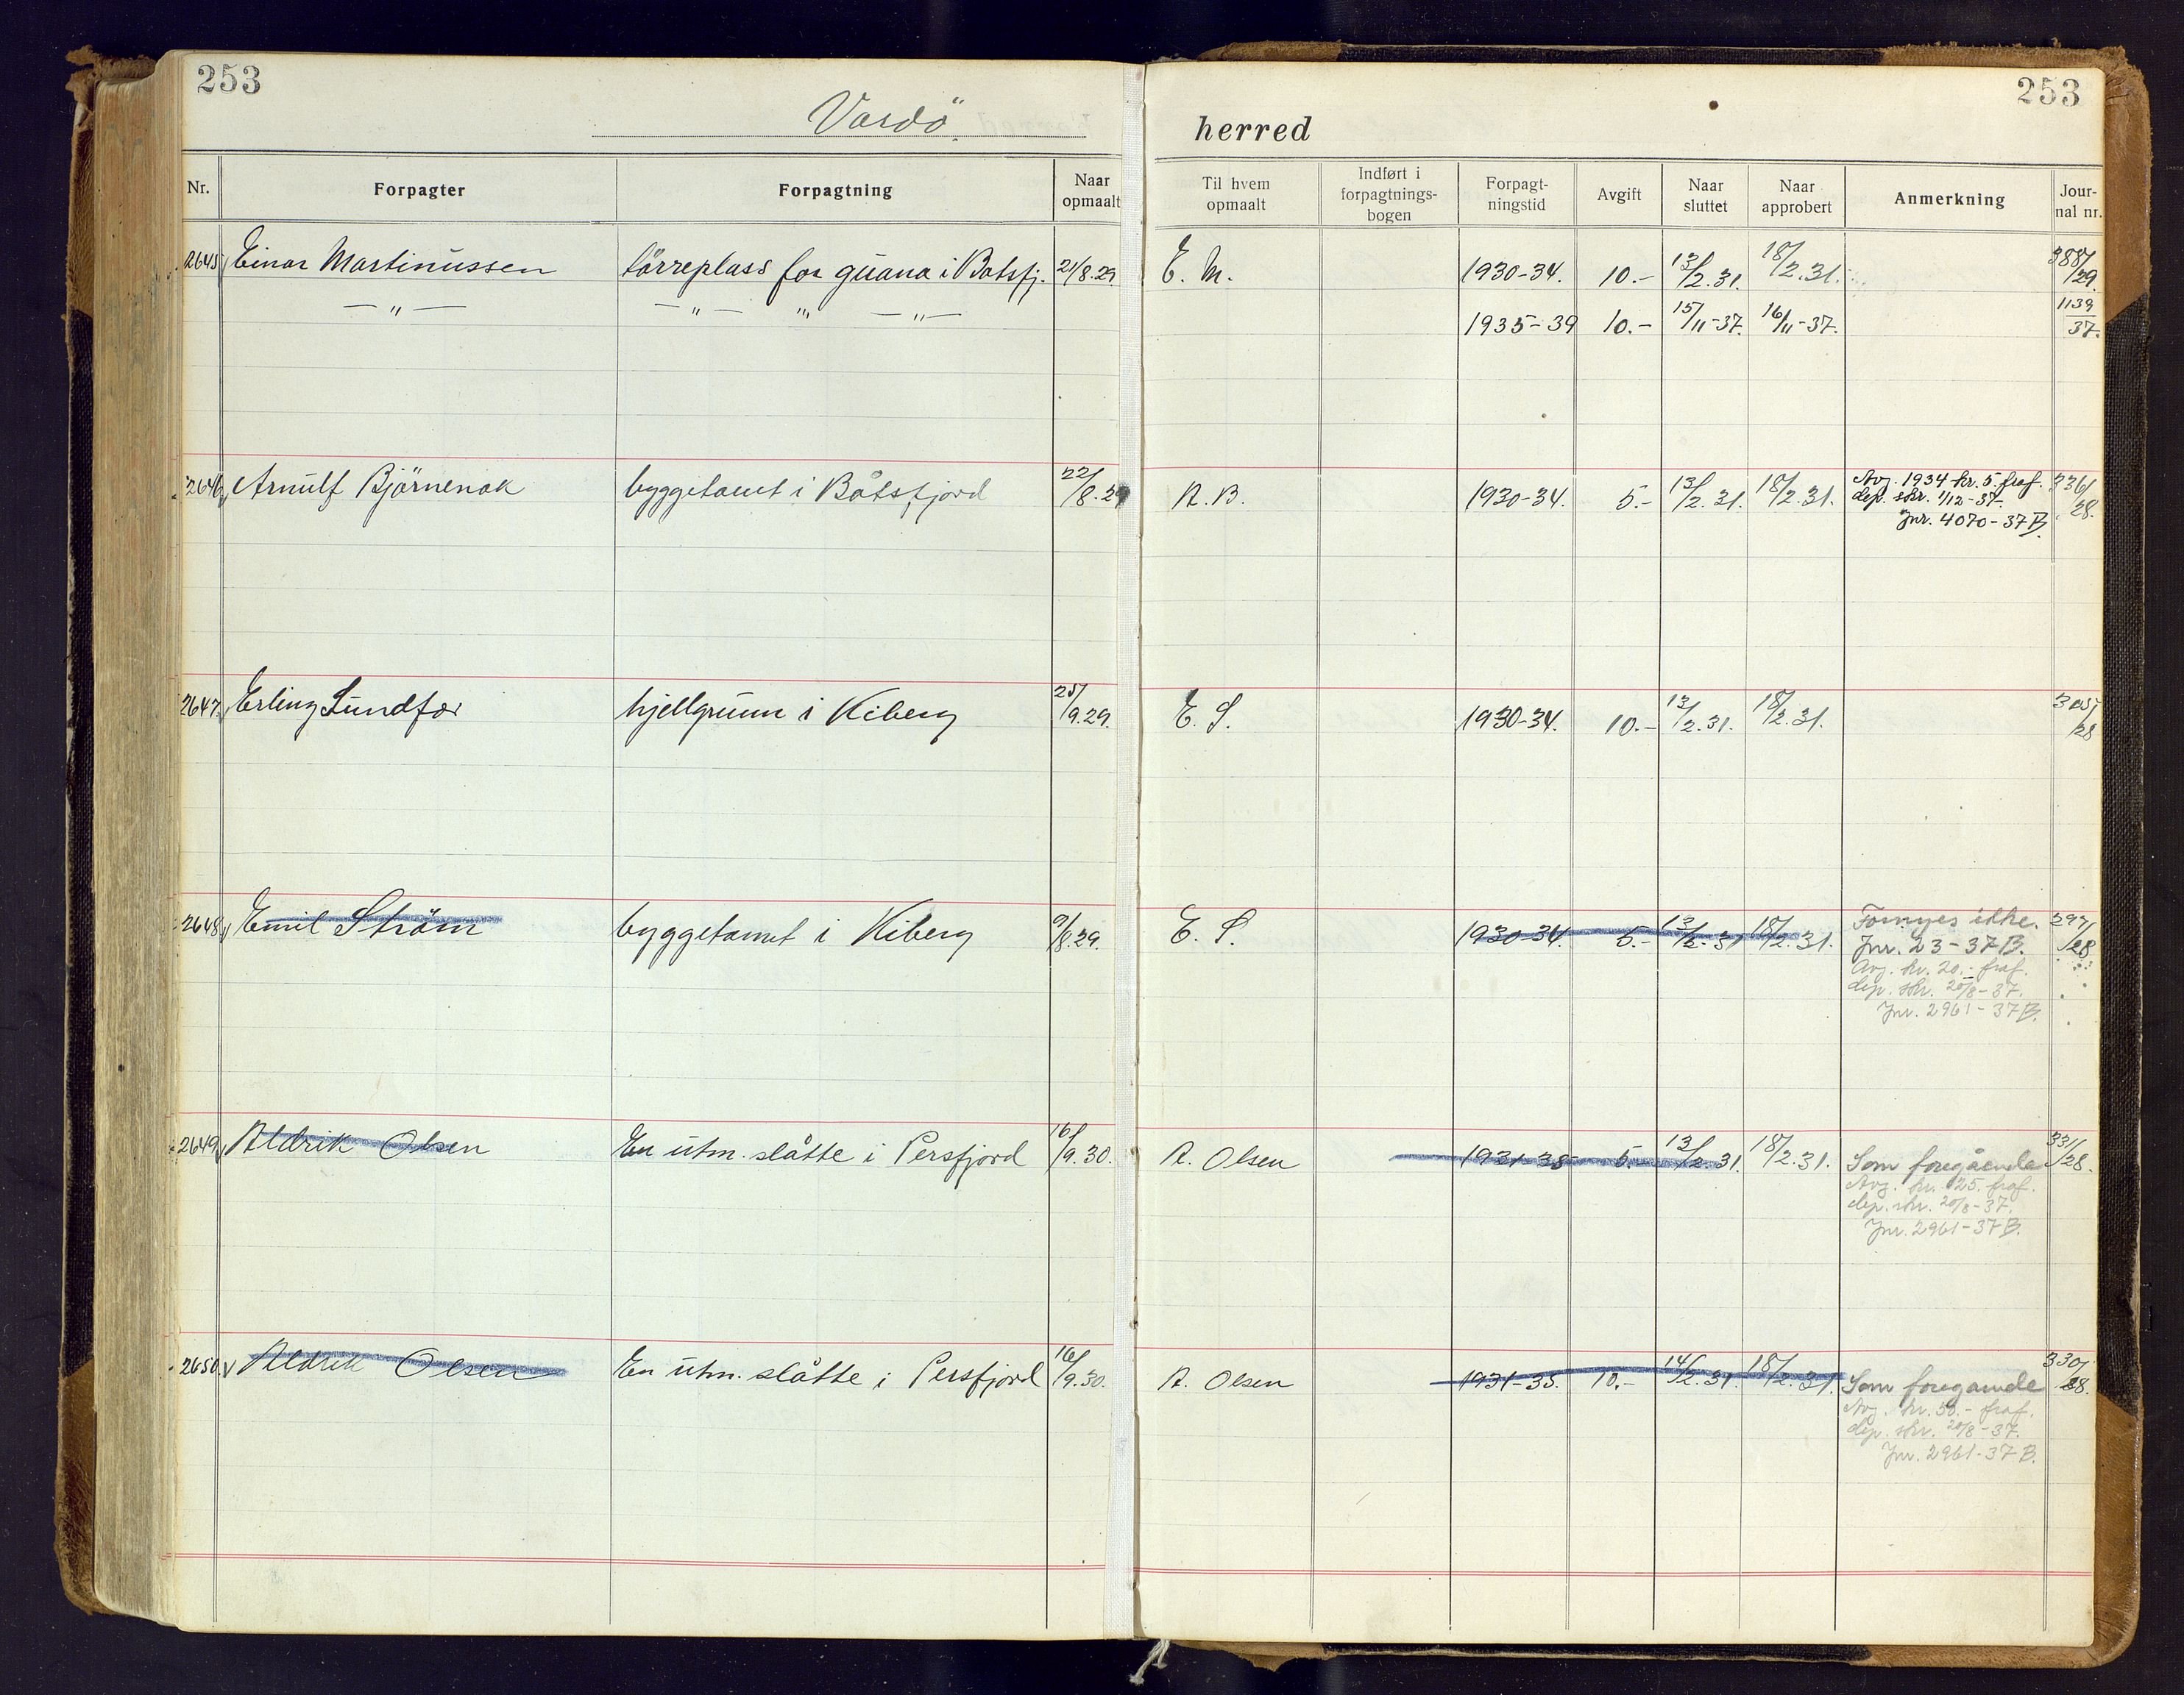 253
Vardö
herred
253
Nr. Forpagter Forpagtning Naar opmaalt Til hvem opmaalt Indført i forpagtnings-bogen Forpagt-ningstid Avgift Naar sluttet Naar approbert Anmerkning Jour-nal nr.
2645 Einar Martinussen törreplass for guana i Batsfj. 21/8.29 E. M. 1930-34. 10.- 13/2.31. 18/2.31. 388/29.
— " — — " — " — " — 1935-39 10.- 15/11-37. 16/11-37. 1139/37.
2646 Arnulf Björnenak byggetomt i Båtsfjord 22/8.29 A. B. 1930-34. 5.- 13/2.31. 18/2.31. Avg. 1934 kr. 5. fraf. 336/28.
dep. skr. 1/12-37.
Jnr. 4070-37 B.
2647. Erling Lundfor hjellgrunn i Kiberg 25/9.29. E. L. 1930-34. 10.- 13/2.31. 18/2.31. 305/28
2648 Emil Ström byggetomt i Kiberg 9/8.29. E. S. 1930-34. 5.- 13/2.31 18/2.31. Fornyes ikke. 297/28
Jnr. 23-37 B.
Avg. kr. 20.- fraf.
dep. skr. 20/8-37.
Jnr. 2961-37 B.
2649 Aldrik Olsen En utm. slåtte i Persfjord 16/9.30. A. Olsen 1931-35 5.- 13/2.31. 18/2.31. Som foregående 331/28.
Avg. kr. 25. fraf.
dep. skr. 20/8-37.
Jnr. 2961-37 B.
2650 Aldrik Olsen En utm. slåtte i Persfjord 16/9.30. A. Olsen 1931-35. 10.- 14/2.31. 18/2.31. Som foregående 330/28.
Avg. kr. 50.- fraf.
dep. skr. 20/8-37.
Jnr. 2961-37 B.